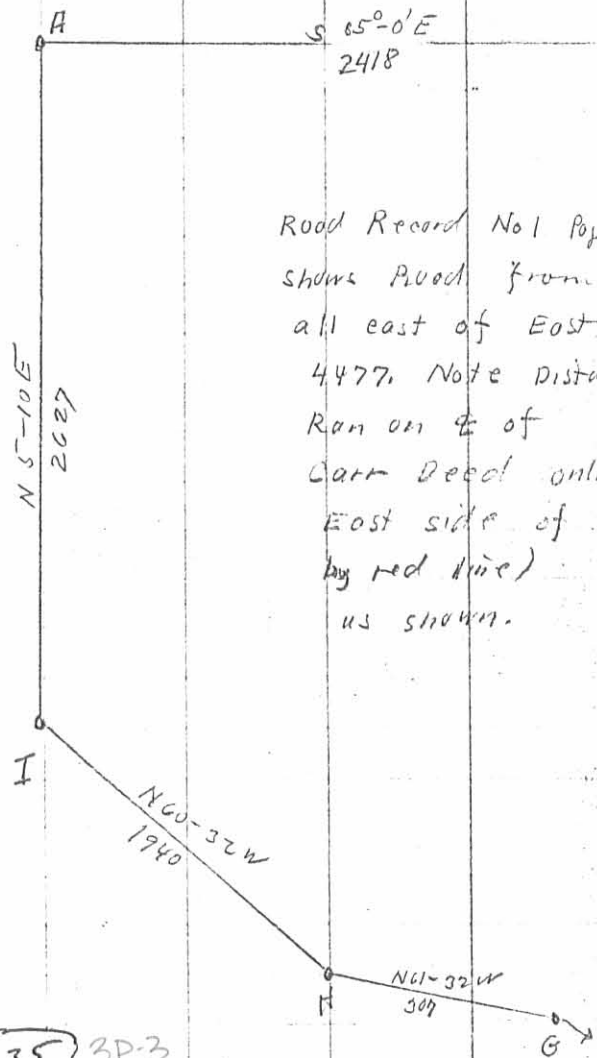 A
S 85°-0'E
2418
Road Record No 1
shows Road from
all east of East
4477. Note
Ran on ⅊ of
Carr Deed
East side of
by red line)
as shown.
N 5-10E
2627
I
N60-32W
1940
H
N61-32W
307
G
3D-3